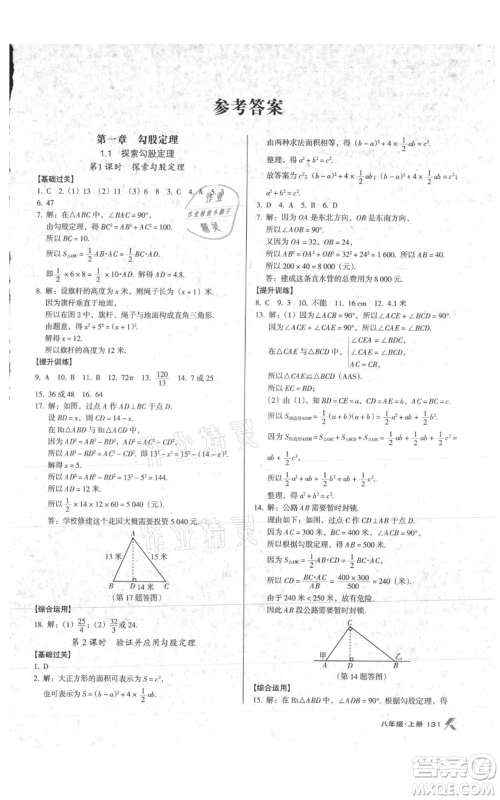 参考答案
第一章 勾股定理
1.1 探索勾股定理
第1课时 探索勾股定理
【基础过关】
1. C 2. (1) 13 (2) 11 (3) 6 3. 8 4. A 5. 3
6. 47
7. 解:在△ABC中,∠BAC=90°,
由勾股定理,得BC²=AB²+AC².
所以BC=10.
所以S△ABC=1/2AB·AC=1/2BC·AD.
即1/2×6×8=1/2×10×AD.
解得AD=
8. 解:设旗杆的高度为x米,则绳子长为(x+1)米.
因为旗杆垂直于地面,
所以旗杆、绳子与地面构成直角三角形.
由题意,得x²+5²=(x+1)².
解得x=12.
所以旗杆的高度为12米.
【提升训练】
9. A 10. B 11. B 12. 72π 13. 120/13 14. 7或25
15. 36或48 16. 64
17. 解:如图,过点A作AD⊥BC于点D.
设BD=x,则CD=14-x.
在Rt△ABD与Rt△ACD中,
因为AD²=AB²-BD²,AD²=AC²-CD²,
所以AB²-BD²=AC²-CD²,即13²-x²=15²-(14-x)².
解得x=5.
所以AD²=AB²-BD²=13²-5²=144.
所以AD=12(米).
所以学校修建这个花园的费用为
1/2×14×12×60=5 040(元).
答:学校修建这个花园大概需要投资5 040元.
13米 15米
A
B D 14米 C
(第17题答图)
【综合运用】
18. 解:(1)25/4;(2)32/3或24.
第2课时 验证并应用勾股定理
【基础过关】
1. D
2. 解:大正方形的面积可表示为S=c²,
也可表示为S=(b-a)²+4×1/2ab.
由两种求法面积相等,得(b-a)²+4×1/2ab=c².
整理,得a²+b²=c².
故答案为c²;(b-a)²+4×1/2ab;(b-a)²+4×1/2ab=c².
3. D 4. A 5. B 6. 150
7. 解:因为OA是东西方向,OB是南北方向,
所以∠AOB=90°.
所以AB²=OA²+OB²=32²+24²=1 600.
所以AB=40海里.
答:建成这条直水管的总费用为8 000元.
【提升训练】
8. C 9. 3 10. 不能 11. 16 cm 12. 4.1米
13. 解:(1)因为∠CAE+∠ACE=90°,∠ACE+∠BCD=90°,
所以∠CAE=∠BCD.
在△CAE与△BCD中,
∠CEA=∠BDC,
∠CAE=∠BCD,
AC=CB,
所以△CAE≌△BCD(AAS).
所以EC=BD.
(2)由(1)知,BD=CE=a,CD=AE=b.
所以S梯形AEDB=1/2(a+b)(a+b)=1/2a²+ab+1/2b².
又因为S梯形AEDB=S△AEC+S△BCD+S△ABC=1/2ab+1/2ab+1/2c²=ab+1/2c²,
所以1/2a²+ab+1/2b²=ab+1/2c².
整理,得a²+b²=c².
14. 解:公路AB需要暂时封锁.
理由如下:如图,过点C作CD⊥AB于点D.
因为BC=400米,AC=300米,∠ACB=90°,
所以AB=500米.
因为S△ABC=1/2AB·CD=1/2BC·AC,
所以CD=BC·AC/AB=400×300/500=240(米).
由于240米<250米,故有危险.
因此AB段公路需要暂时封锁.
C
甲 A D B 乙
(第14题答图)
【综合运用】
15. 解:在Rt△ABD中,∠ADB=90°,
八年级·上册 131